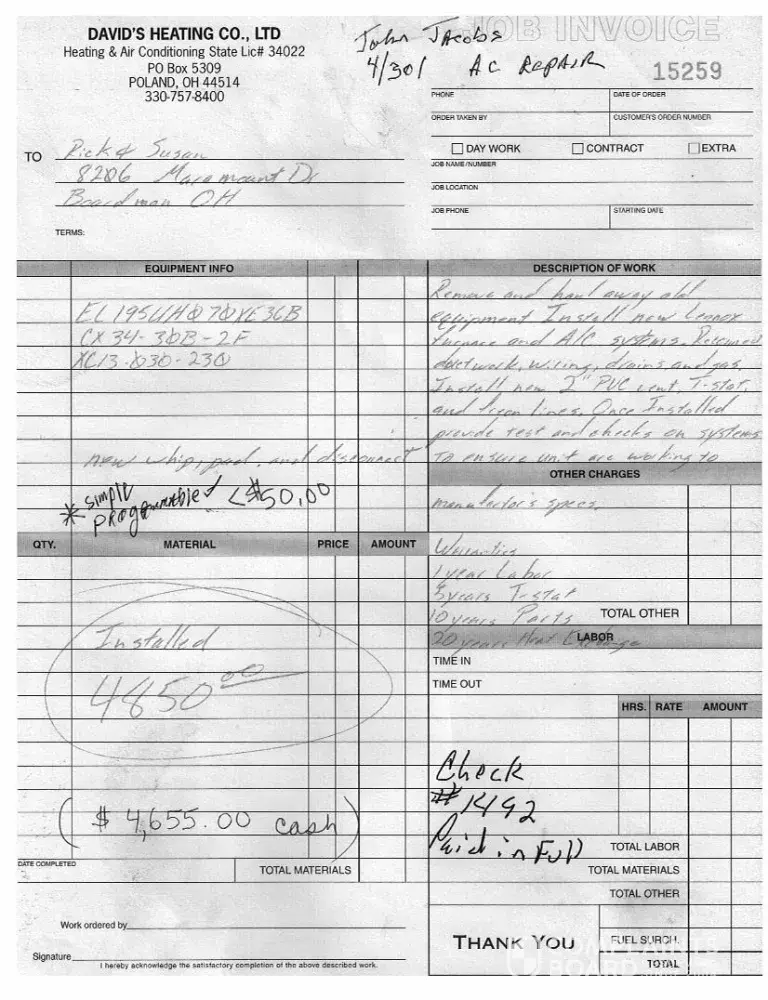 DAVID'S HEATING CO., LTD
Heating & Air Conditioning State Lic# 34022
PO Box 5309
POLAND, OH 44514
330-757-8400
John Jacobs
4/301 AC REPAIR
JOB INVOICE
15259
PHONE
DATE OF ORDER
ORDER TAKEN BY
CUSTOMER'S ORDER NUMBER
DAY WORK CONTRACT EXTRA
JOB NAME/NUMBER
JOB LOCATION
JOB PHONE
STARTING DATE
TO Rick & Susan
8206 Maramount Dr
Boardman OH
TERMS:
EQUIPMENT INFO
EL195UH070XE36B
CX34-30B-2F
XC13-030-230
new whip, pad, and disconnect
* Simple
programmable < $50.00
DESCRIPTION OF WORK
Remove and haul away old
equipment Install new Lennox
furnace and A/C systems. Reconnect
ductwork, wiring, drains, and gas.
Install new 2" PVC vent, T-stat,
and freon lines. Once Installed
provide test and checks on systems
to ensure unit are working to
OTHER CHARGES
manufactor's specs.
Warranties
1 year Labor
5 years T-stat
10 years Parts
TOTAL OTHER
20 years Heat Exchange
LABOR
TIME IN
TIME OUT
HRS. RATE AMOUNT
QTY. MATERIAL PRICE AMOUNT
Installed
4850.00
($4,655.00 cash)
Check
#1492
Paid in Full
TOTAL LABOR
DATE COMPLETED
TOTAL MATERIALS
TOTAL MATERIALS
TOTAL OTHER
Work ordered by
Signature
I hereby acknowledge the satisfactory completion of the above described work.
THANK YOU
FUEL SURCH.
TOTAL
COMPLAINTS
BOARD